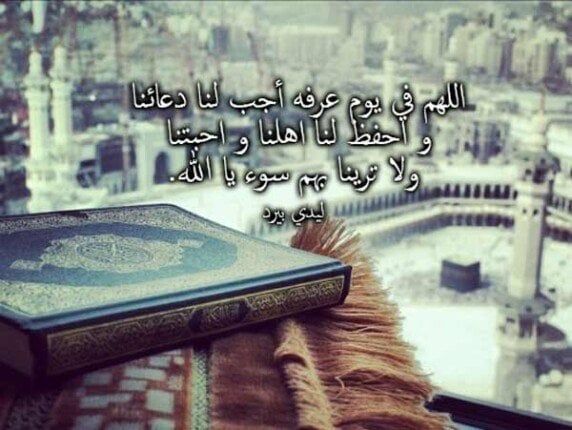 اللهم في يوم عرفه أجب لنا دعائنا
و احفظ لنا اهلنا و احبتنا
ولا ترينا بهم سوء يا الله.
ليدي بيرد